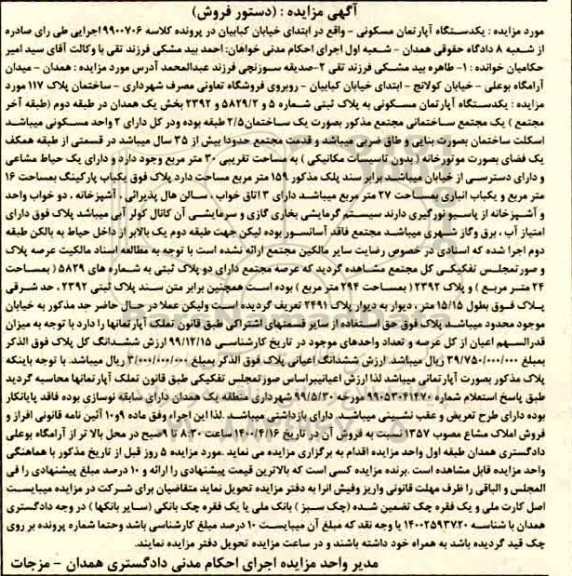 آگهی مزایده : (دستور فروش)
مورد مزایده : یکدستگاه آپارتمان مسکونی - واقع در ابتدای خیابان کبابیان در پرونده کلاسه ۹۹۰۰۷۰۶ اجرایی طی رای صادره
از شعبه ۸ دادگاه حقوقی همدان - شعبه اول اجرای احکام مدنی خواهان: احمد بید مشکی فرزند تقی با وکالت آقای سید امیر
حکامیان خوانده : ۱- طاهره بید مشکی فرزند تقی ۲-صدیقه سوزنچی فرزند عبدالمحمد آدرس مورد مزایده : همدان - میدان
آرامگاه بوعلی - خیابان کولانج - ابتدای خیابان کبابیان - روبروی فروشگاه تعاونی مصرف شهرداری - ساختمان پلاک ۱۱۷ مورد
مزایده : یکدستگاه آپارتمان مسکونی به پلاک ثبتی شماره ۵ و ۵۸۲۹/۲ و ۲۳۹۲ بخش یک همدان در طبقه دوم (طبقه آخر
مجتمع ) یک مجتمع ساختمانی مجتمع مذکور بصورت یک ساختمان۲/۵ طبقه بوده ودر کل دارای ۲ واحد مسکونی میباشد
اسکلت ساختمان بصورت بنایی و طاق ضربی میباشد و قدمت مجتمع حدودا بیش از ۳۵ سال میباشد در قسمتی از طبقه همکف
یک فضای بصورت موتورخانه (بدون تاسیسات مکانیکی ) به مساحت تقریبی ۳۰ متر مربع وجود دارد و دارای یک حیاط مشاعی
و دارای دسترسی از خیابان میباشد برابر سند پلک مذکور ۱۵۹ متر مربع مساحت دارد پلاک فوق یکباب پارکینگ بمساحت ۱۶
متر مربع و یکباب انباری بمساحت ۲۷ متر مربع میباشد دارای ۳ اتاق خواب ، سالن هال پذیرائی ، آشپزخانه ، دو خواب واحد
و آشپزخانه از پاسیو نورگیری دارند سیستم گرمایشی بخاری گازی و سرمایشی آن کانال کولر آبی میباشد پلاک فوق دارای
امتیاز آب ، برق وگاز شهری میباشد مجتمع فاقد آسانسور بوده لیکن جهت طبقه دوم یک بالابر از داخل حیاط به بالکن طبقه
دوم اجرا شده که اسنادی در خصوص رضایت سایر مالکین مجتمع ارائه نشده است با توجه به مطالعه اسناد مالکیت عرصه پلاک
و صورتمجلس تفکیکی کل مجتمع مشاهده گردید که عرصه مجتمع دارای دو پلاک ثبتی به شماره های ۵۸۲۹ ( بمساحت
۲۴ متر مربع ) و پلاک ۲۳۹۲ ( بمساحت ۲۹۴ متر مربع ) بوده است همچنین برابر متن سند پلاک ثبتی ۲۳۹۲ ، حد شرقی
پلاک فوق بطول ۱۵/۱۵ متر ، دیوار به دیوار پلاک ۲۴۹۱ تعریف گردیده است ولیکن عملا در حال حاضر حد مذکور به خیابان
موجود محدود میباشد پلاک فوق حق استفاده از سایر قسمتهای اشتراکی طبق قانون تملک آپارتمانها را دارد با توجه به میزان
قدرالسهم اعیان از کل عرصه و تعداد واحدهای موجود در تاریخ کارشناسی ۹۹/۱۲/۱۵ ارزش ششدانگ کل پلاک فوق الذکر
بمبلغ ۳۹/۷۵۰/۰۰۰/۰۰۰ ریال میباشد. ارزش ششدانگ اعیانی پلاک فوق الذکر بمبلغ ۳/۰۰۰/۰۰۰/۰۰۰ ریال میباشد. با توجه باینکه
پلاک مذکور بصورت آپارتمانی میباشد لذا ارزش اعیانیبراساس صورتمجلس تفکیکی طبق قانون تملک آپارتمانها محاسبه گردید
طبق پاسخ استعلام شماره ۹۹۰۵۳۰۴۱۴۷۰ مورخه ۹۹/۵/۳۰ شهرداری منطقه یک همدان دارای سابقه نوسازی بوده فاقد پایانکار
بوده دارای طرح تعریض و عقب نشینی میباشد. دارای بازداشتی میباشد. لذا این اجراء وفق ماده ۹و۱۰ آئین نامه قانونی افراز و
فروش املاک مشاع مصوب ۱۳۵۷ نسبت به فروش آن در تاریخ ۱۴۰۰/۴/۱۶ ۸:۳۰ تا ۹صبح در محل بالا تر از آرامگاه بوعلی
دادگستری همدان طبقه اول واحد مزایده اقدام به برگزاری مزایده می نماید .مورد مزایده ۵ روز قبل از تاریخ مذکور با هماهنگی
واحد مزایده قابل مشاهده است .برنده مزایده کسی است که بالاترین قیمت پیشنهادی را ارائه و ۱۰ درصد مبلغ پیشنهادی را فی
المجلس و الباقی را ظرف مهلت قانونی واریز وفیش انرا به دفتر مزایده تحویل نماید متقاضیان برای شرکت در مزایده میبایست
اصل کارت ملی و یک فقره چک تضمین شده (چک سبز ) بانک ملی یا یک فقره چک بانکی (سایر بانکها ) در وجه دادگستری
همدان با شناسه ۱۴۰۰۲۵۹۳۷۲۰ یا وجه نقد که مبلغ آن میبایست ۱۰ درصد مبلغ کارشناسی باشد وحتما شماره پرونده بر روی
چک قید گردیده باشد به همراه خود داشته باشند و در ساعت مزایده تحویل دفتر مزایده نمایند.
مدیر واحد مزایده اجرای احکام مدنی دادگستری همدان - مزجات